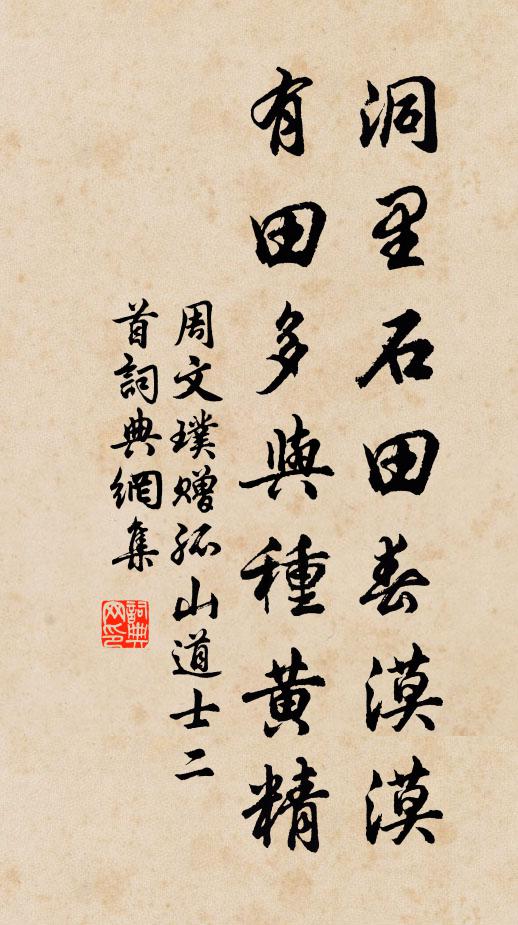 洞里石田春漠漠
有田多與種黃精
周文璞贈孤山道士二
首詞典網集
詞典
网印